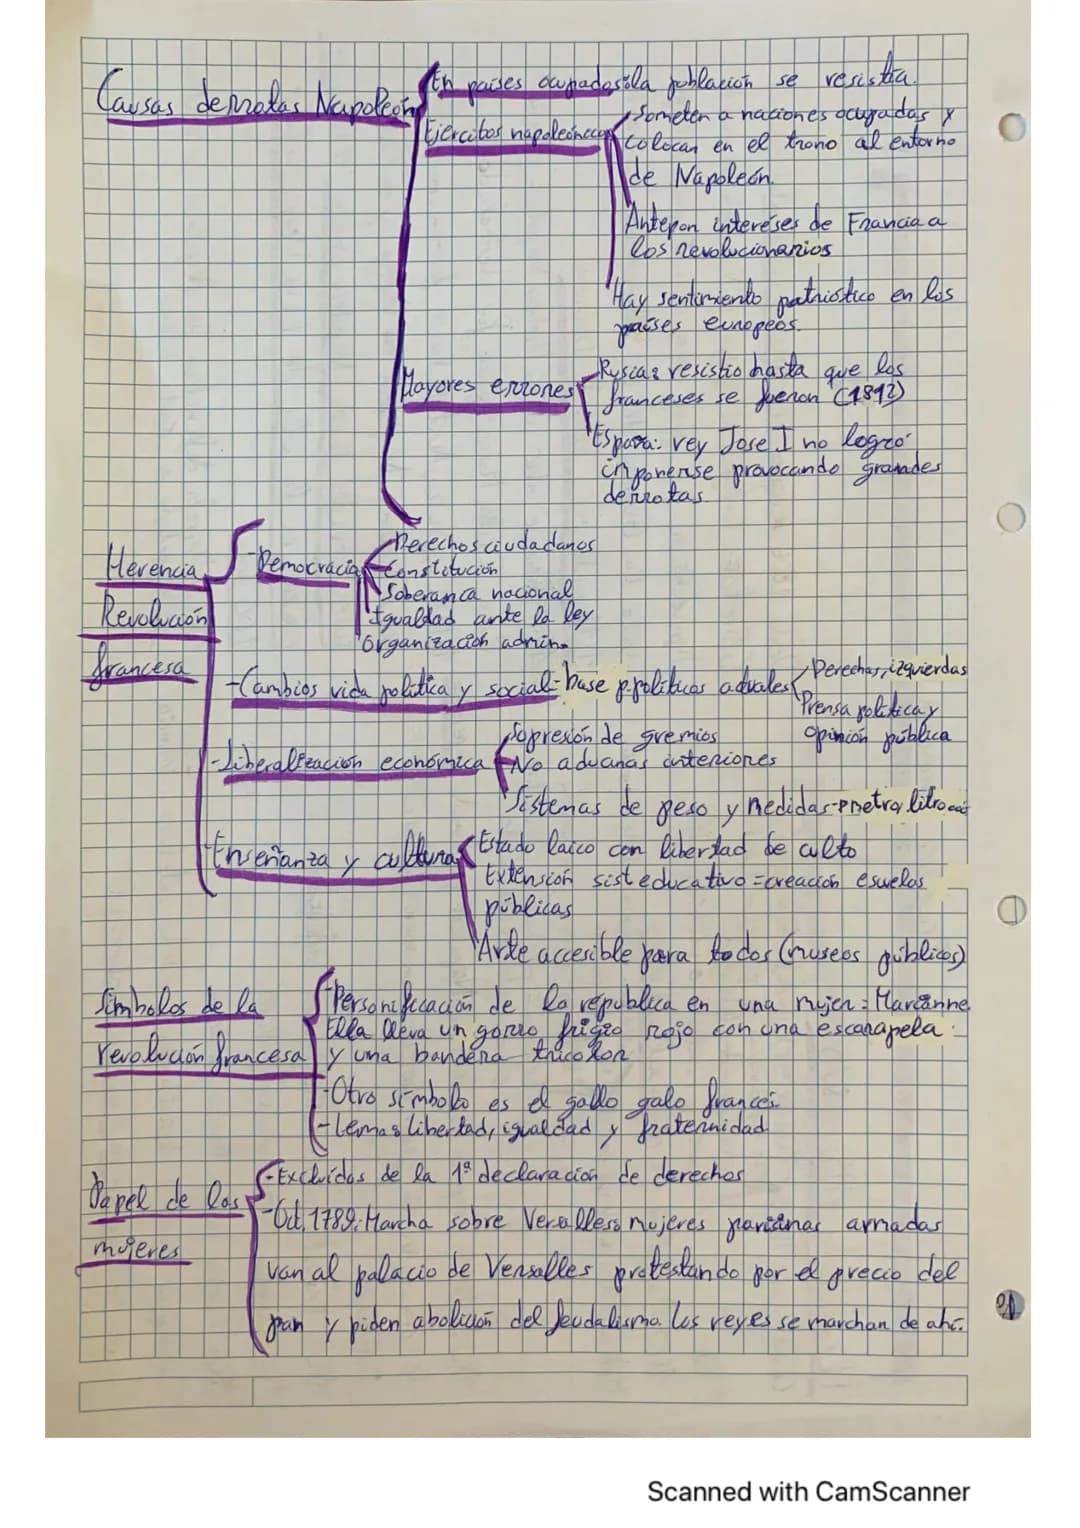 Causas derrotas Napoleón
-En paises ocupados: la población se resistía.
Ejércitos napoleónicos
Someten a naciones ocupadas y
colocan en el trono al entorno
de Napoleón.
Antepon intereses de Francia a
los revolucionarios
Hay sentimiento patriótico en los
países europeos.
Mayores errores
Rusia: resistio hasta que los
franceses se fueron (1812)
España: rey Jose I no logró
imponerse provocando grandes
derrotas
Herencia
Revolución
francesa
-Democracia
Derechos ciudadanos
Constitución
Soberanía nacional
Igualdad ante la ley
Organización admin.
-Cambios vida política y social-base p.políticos actuales
Derechas, izquierdas
Prensa política y
opinión pública
-Liberalización económica
Supresión de gremios
No aduanas interiores
Sistemas de peso y medidas-metro, litro
Enseñanza y cultura
Estado laico con libertad de culto
Extensión sist educativo = creación escuelas
públicas
Arte accesible para todos (museos públicos)
Símbolos de la
revolución francesa
-Personificación de la república en una mujer: Marianne.
Ella lleva un gorro frigio rojo con una escarapela
y una bandera tricolor
-Otro símbolo es el gallo galo francés.
-Lema: libertad, igualdad y fraternidad
Papel de las
mujeres
-Excluídas de la 1ª declaración de derechos
-Oct, 1789: Marcha sobre Versalles: mujeres parisinas armadas
van al palacio de Versalles protestando por el precio del
pan y piden abolición del feudalismo. Los reyes se marchan de ahí.
Scanned with CamScanner